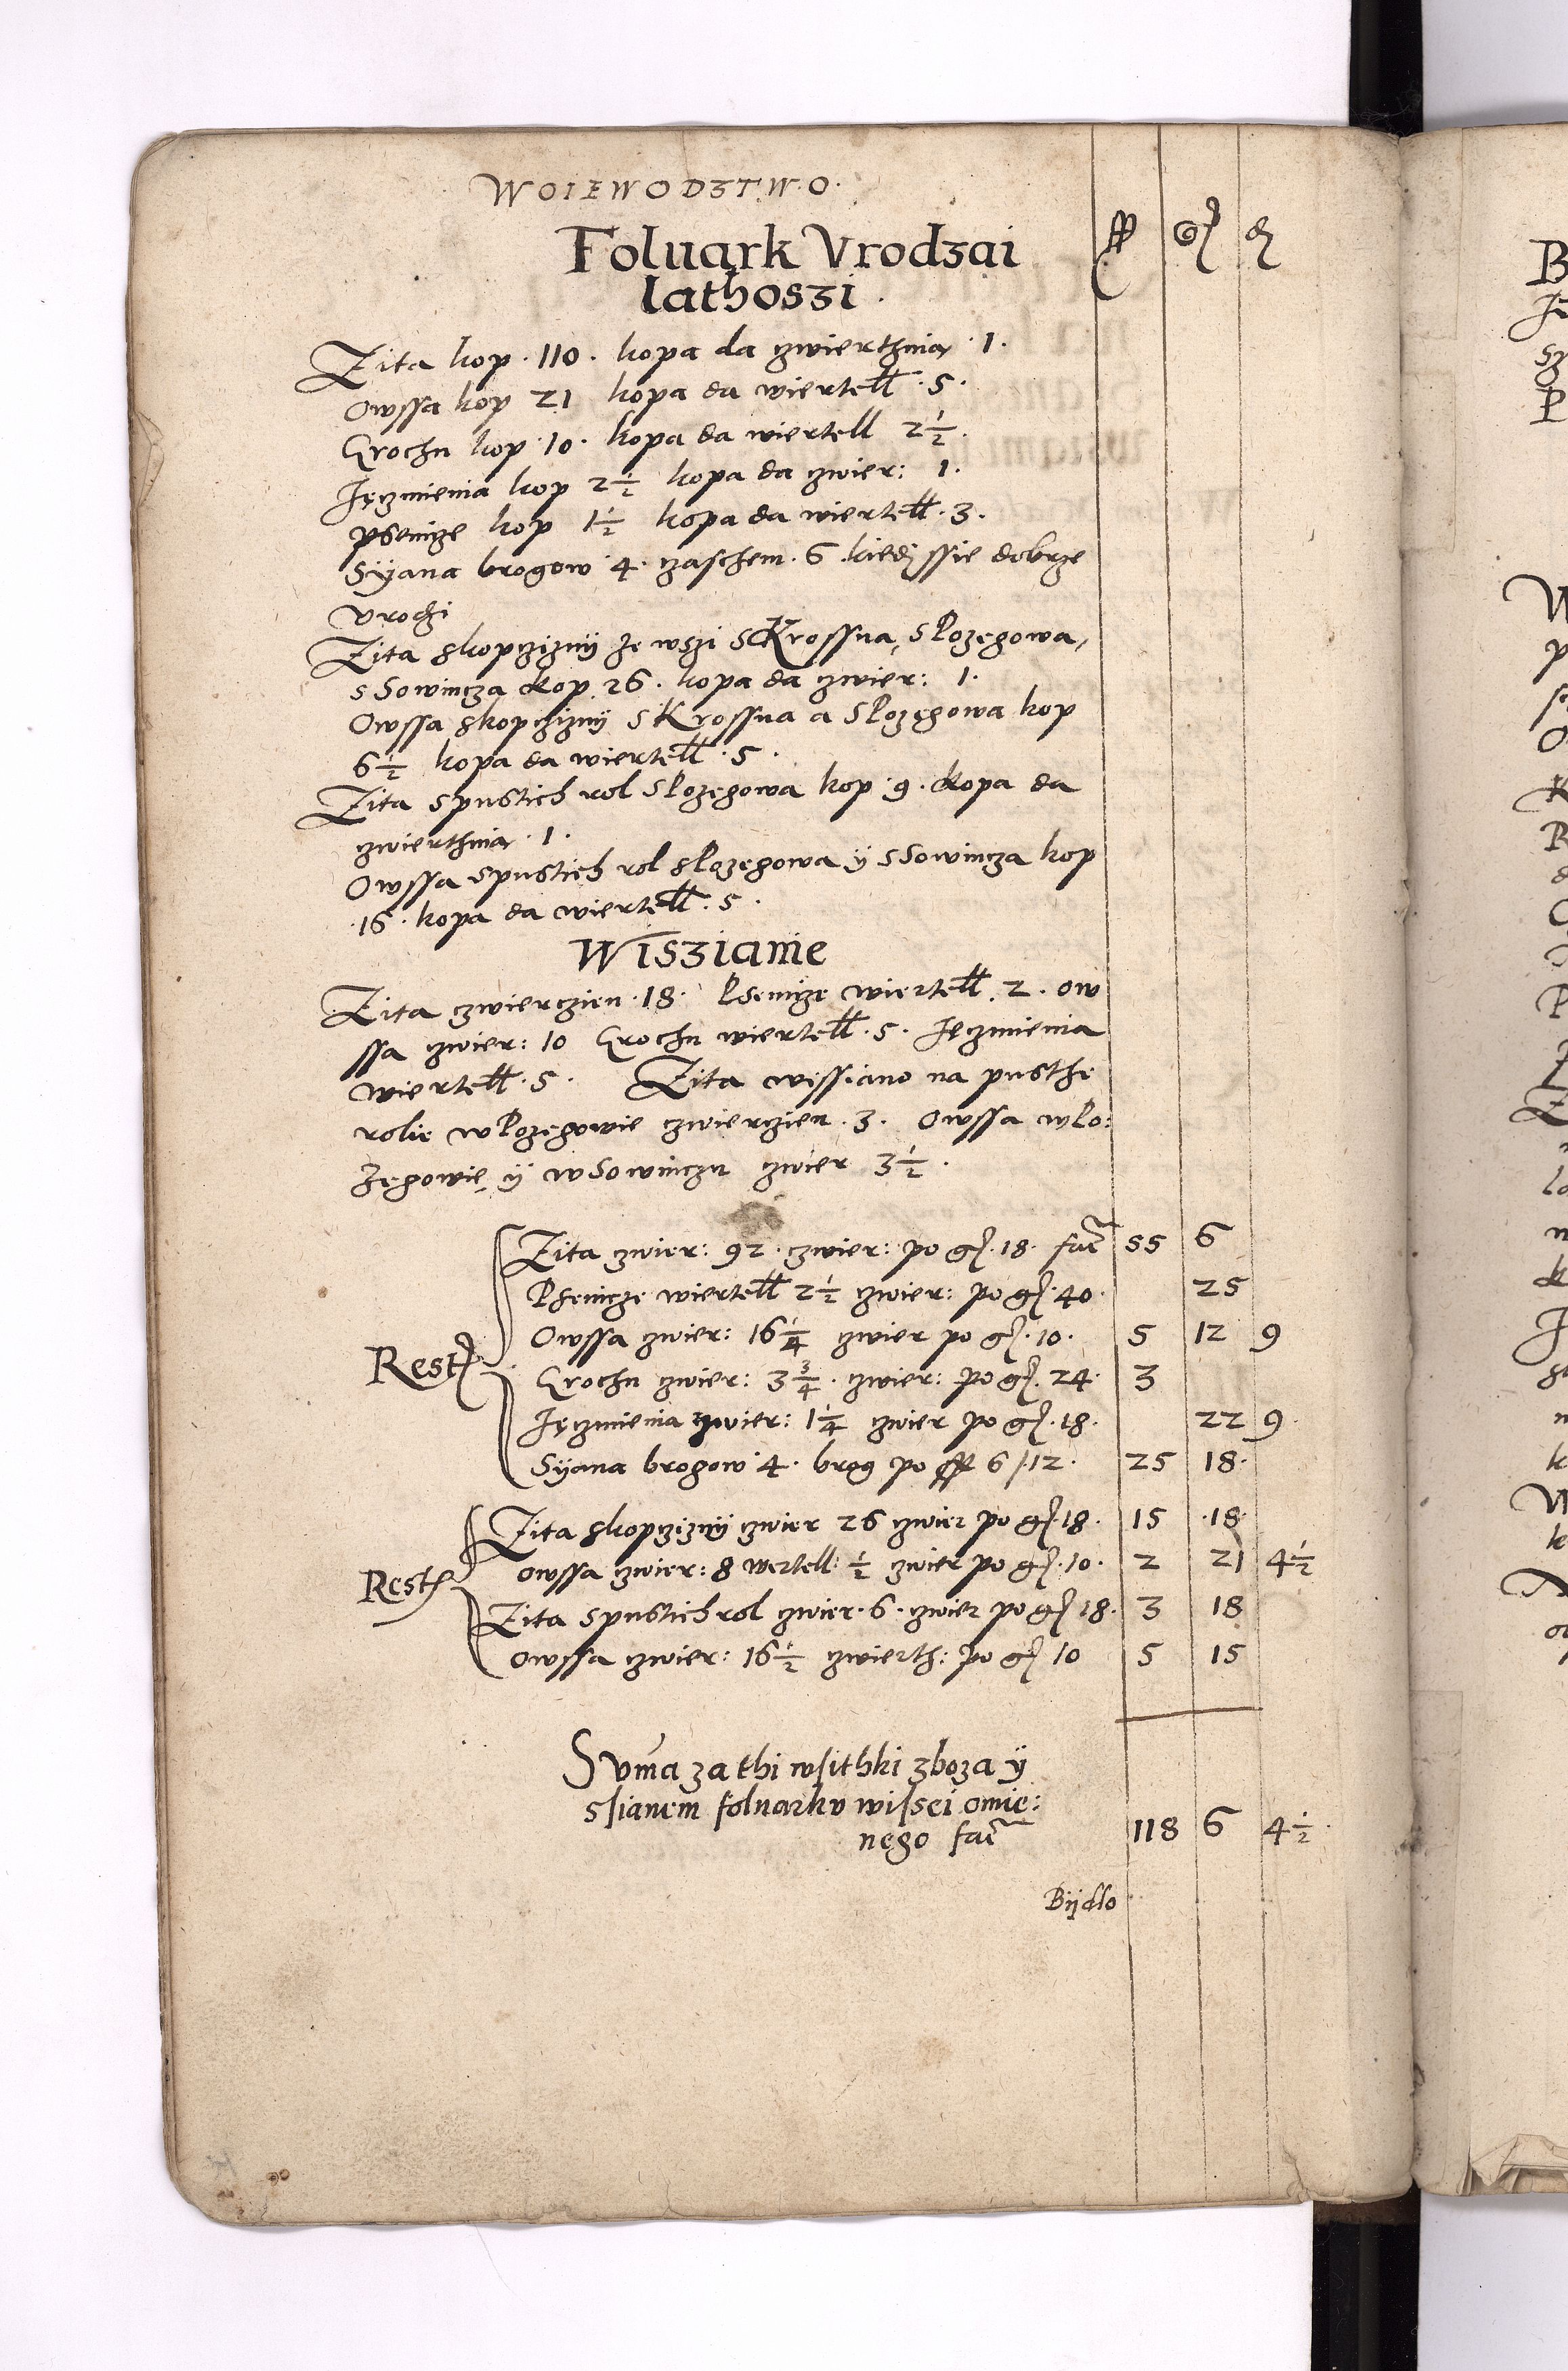 WOIEWODZTWO.
Foluark Vrodzai ff gr d
lathoszi.
Zita kop .110. kopa da czwierthnia .1.
Owssa kop 21 kopa da wiertell .5.
Grochu kop .10. kopa da wiertell 2½.
Jęczmienia kop 2½ kopa da czwier: 1.
psenicze kop 1½ kopa da wiertell .3.
Syana brogow 4. czaschem .6. kiedj ssie dobrze
vrodzi
Zita skopczizny ze wszi s Krossna, s Lozęgowa,
s Sowincza kop 26. kopa da czwier: 1.
Owssa skopczizny s Krossna a s Lozęgowa kop
6½ kopa da wiertell .5.
Zita s pustich rol s Lozęgowa kop .9. kopa da
czwierthnia .1.
Owssa s pustich rol s Lozęgowa y s Sowincza kop
.16. kopa da wiertell .5.
Wisziamie
Zita czwierczien .18. Psenicze wiertell .2. ow
ssa czwier: 10 Grochu wiertell .5. Jęczmienia
wiertell .5. Zita wessiano na pusthe
rolie w Lozęgowie czwierczien .3. Owssa w Lo:
zęgowie y w Sowinczu czwier 3½.
Zita czwier: 92. czwier: po gr. 18. facit 55 6
Psenicze wiertell 2½ czwier: po gr. 40. 25
Owssa czwier: 16¼ czwier po gr. 10. 5 12 9
Rest Grochu czwier: 3¾. czwier: po gr. 24. 3
Jęczmienia czwier: 1¼ czwier po gr. 18. 22 9.
Syana brogow 4. brog po ff 6 /.12. 25 18.
Zita skopczizny czwier 26 czwier po gr 18. 15 .18.
Owssa czwier: 8 wertell: ½ czwier po gr. 10. 2 21 4½
Rest Zita s pustich rol czwier. 6. czwier po gr 18. 3 18
Owssa czwier: 16½ czwierth: po gr 10 5 15
Suma za thi wsithki zboza y
ssianem folwarku wissei omie:
nego facit 118 6 4½.
Bydlo